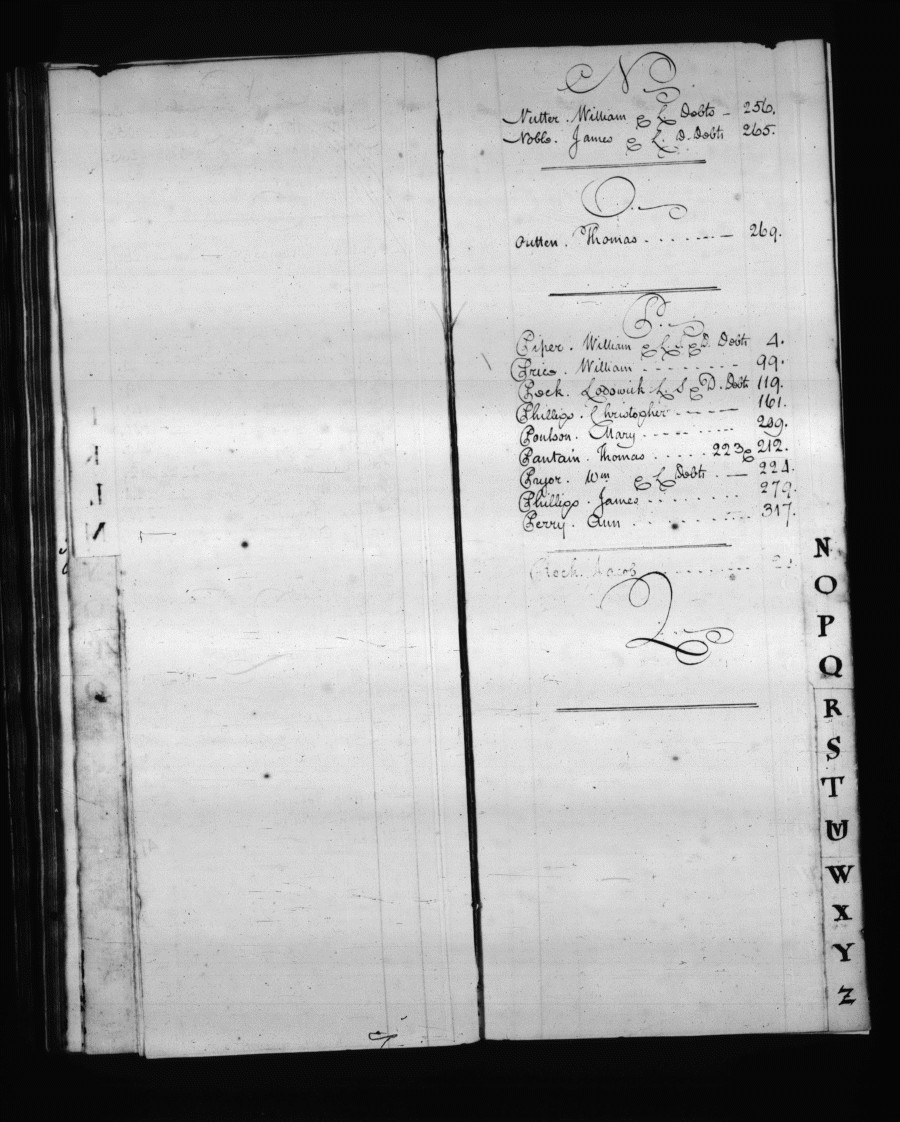 N
Nutter. William & L Debts - 256.
Noble. James & L. D. Debts 265.
O.
Outten. Thomas . . . . . - . . — 269.
P.
Piper. William & L. S. & D. Debts 4.
Price. William . . . . . . . . 99.
Peck. Lodowick L. S & D. Debts 119.
Phillips. Christopher - - - - - 161.
Poulson. Mary . . . . . . . . 209.
Pantain. Thomas . . . . . 223 & 212.
Pryor. Wm & L Debts . - — 224.
Phillips. James . . . . . . . . 279.
Perry. Ann . . . . . . . . . 317.
Q
N
O
P
Q
R
S
T
U
W
X
Y
Z